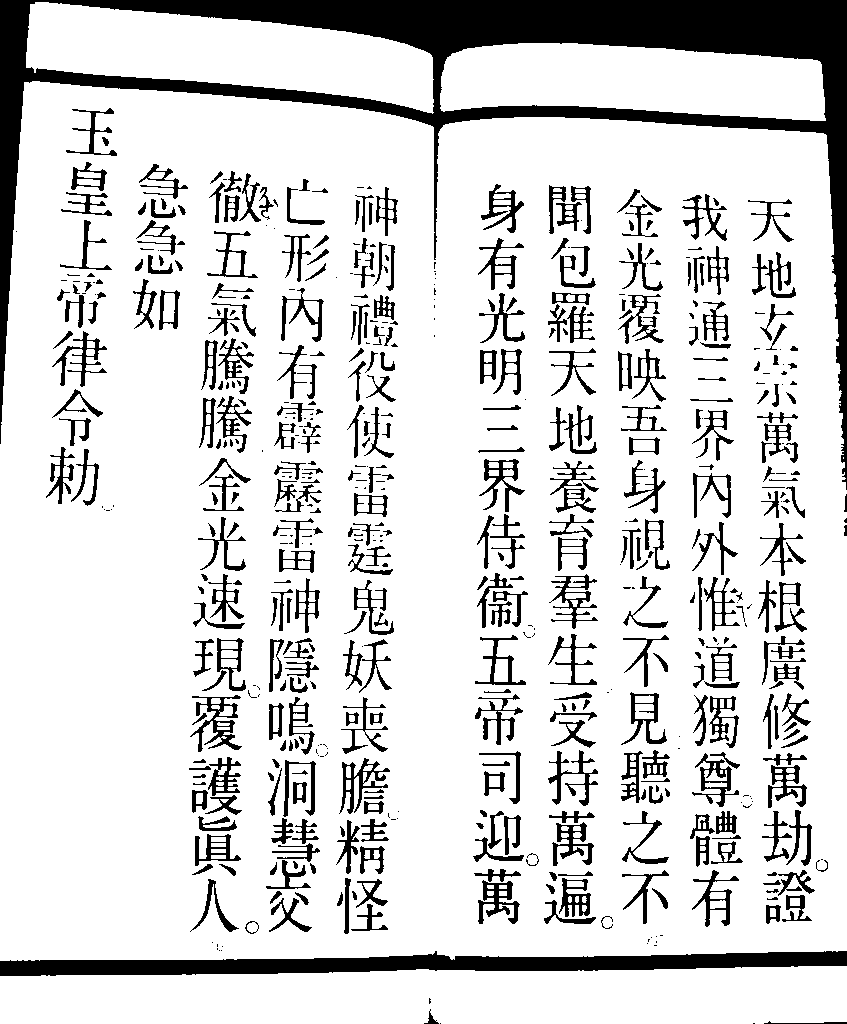 天地玄宗萬氣本根廣修萬劫。證
我神通三界內外惟道獨尊。體有
金光覆映吾身視之不見聽之不
聞包羅天地養育羣生受持萬遍。
身有光明三界侍衞。五帝司迎。萬
神朝禮役使雷霆鬼妖喪膽。精怪
亡形內有霹靂雷神隱鳴。洞慧交
徹五氣騰騰金光速現。覆護眞人。
急急如
玉皇上帝律令勅。